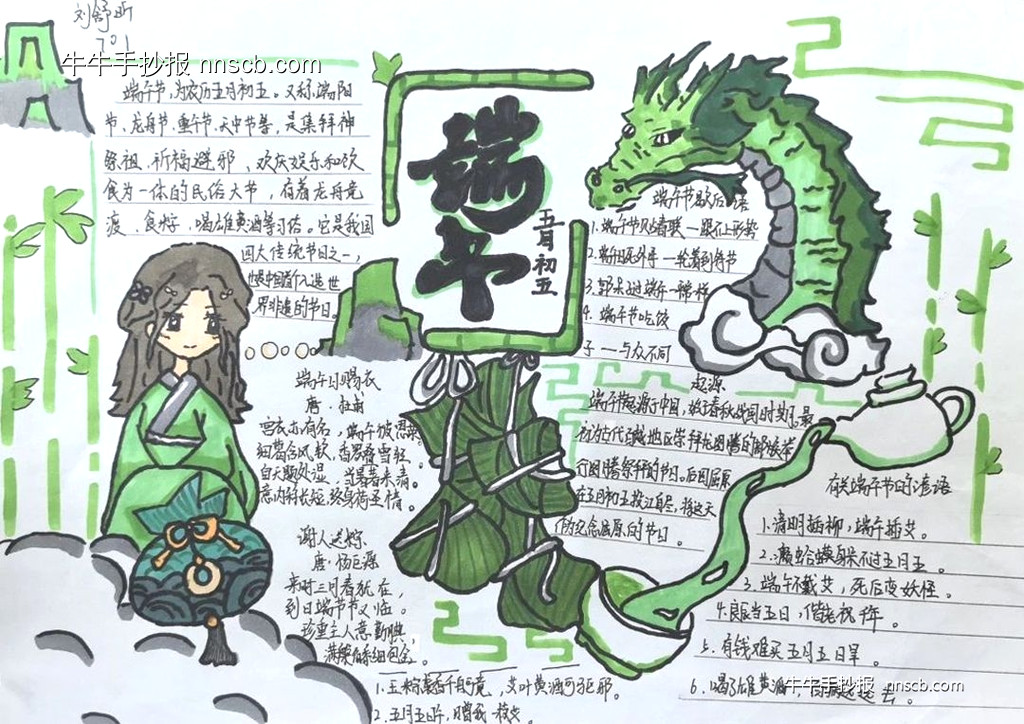 刘舒昕
701
牛牛手抄报 nnscb.com
端午节,为农历五月初五。又称端阳
节、龙舟节、重午节、天中节等,是集拜神
祭祖、祈福避邪、欢庆娱乐和饮
食为一体的民俗大节,有着龙舟竞
渡、食粽、喝雄黄酒等习俗。它是我国
四大传统节日之一,
也是中国首个入选世
界非遗的节日。
端午
五月初五
端午节歇后语
1.端午节贴春联一跟不上形势
3.郭呆过端午一
4.端午节吃饺
子一一与众不同
起源
端午节起源于中国,
在五月初五投江自尽,将这天
作为纪念屈原的节日。
端午日赐衣
唐·杜甫
宫衣亦有名,端午被恩荣。
细葛含风软,香罗叠雪轻。
自天题处湿,当暑著来清。
意内称长短,终身荷圣情。
谢人送粽
唐·杨巨源
来时三月春犹在,
到日端午节又临。
珍重主人意勤腆,
满槃角黍细包金。
有关端午节日的谚语
1.清明插柳,端午插艾。
2.癞蛤蟆躲不过五月五。
3.端午不戴艾,死后变妖怪。
4.良辰当五日,偕老祝千年。
5.有钱难买五月五日旱。
6.喝了雄黄酒,
1.玉粽袭香千舸竞,艾叶黄酒可驱邪。
2.五月五日午,赠我一枝艾。
牛牛手抄报 nnscb.com